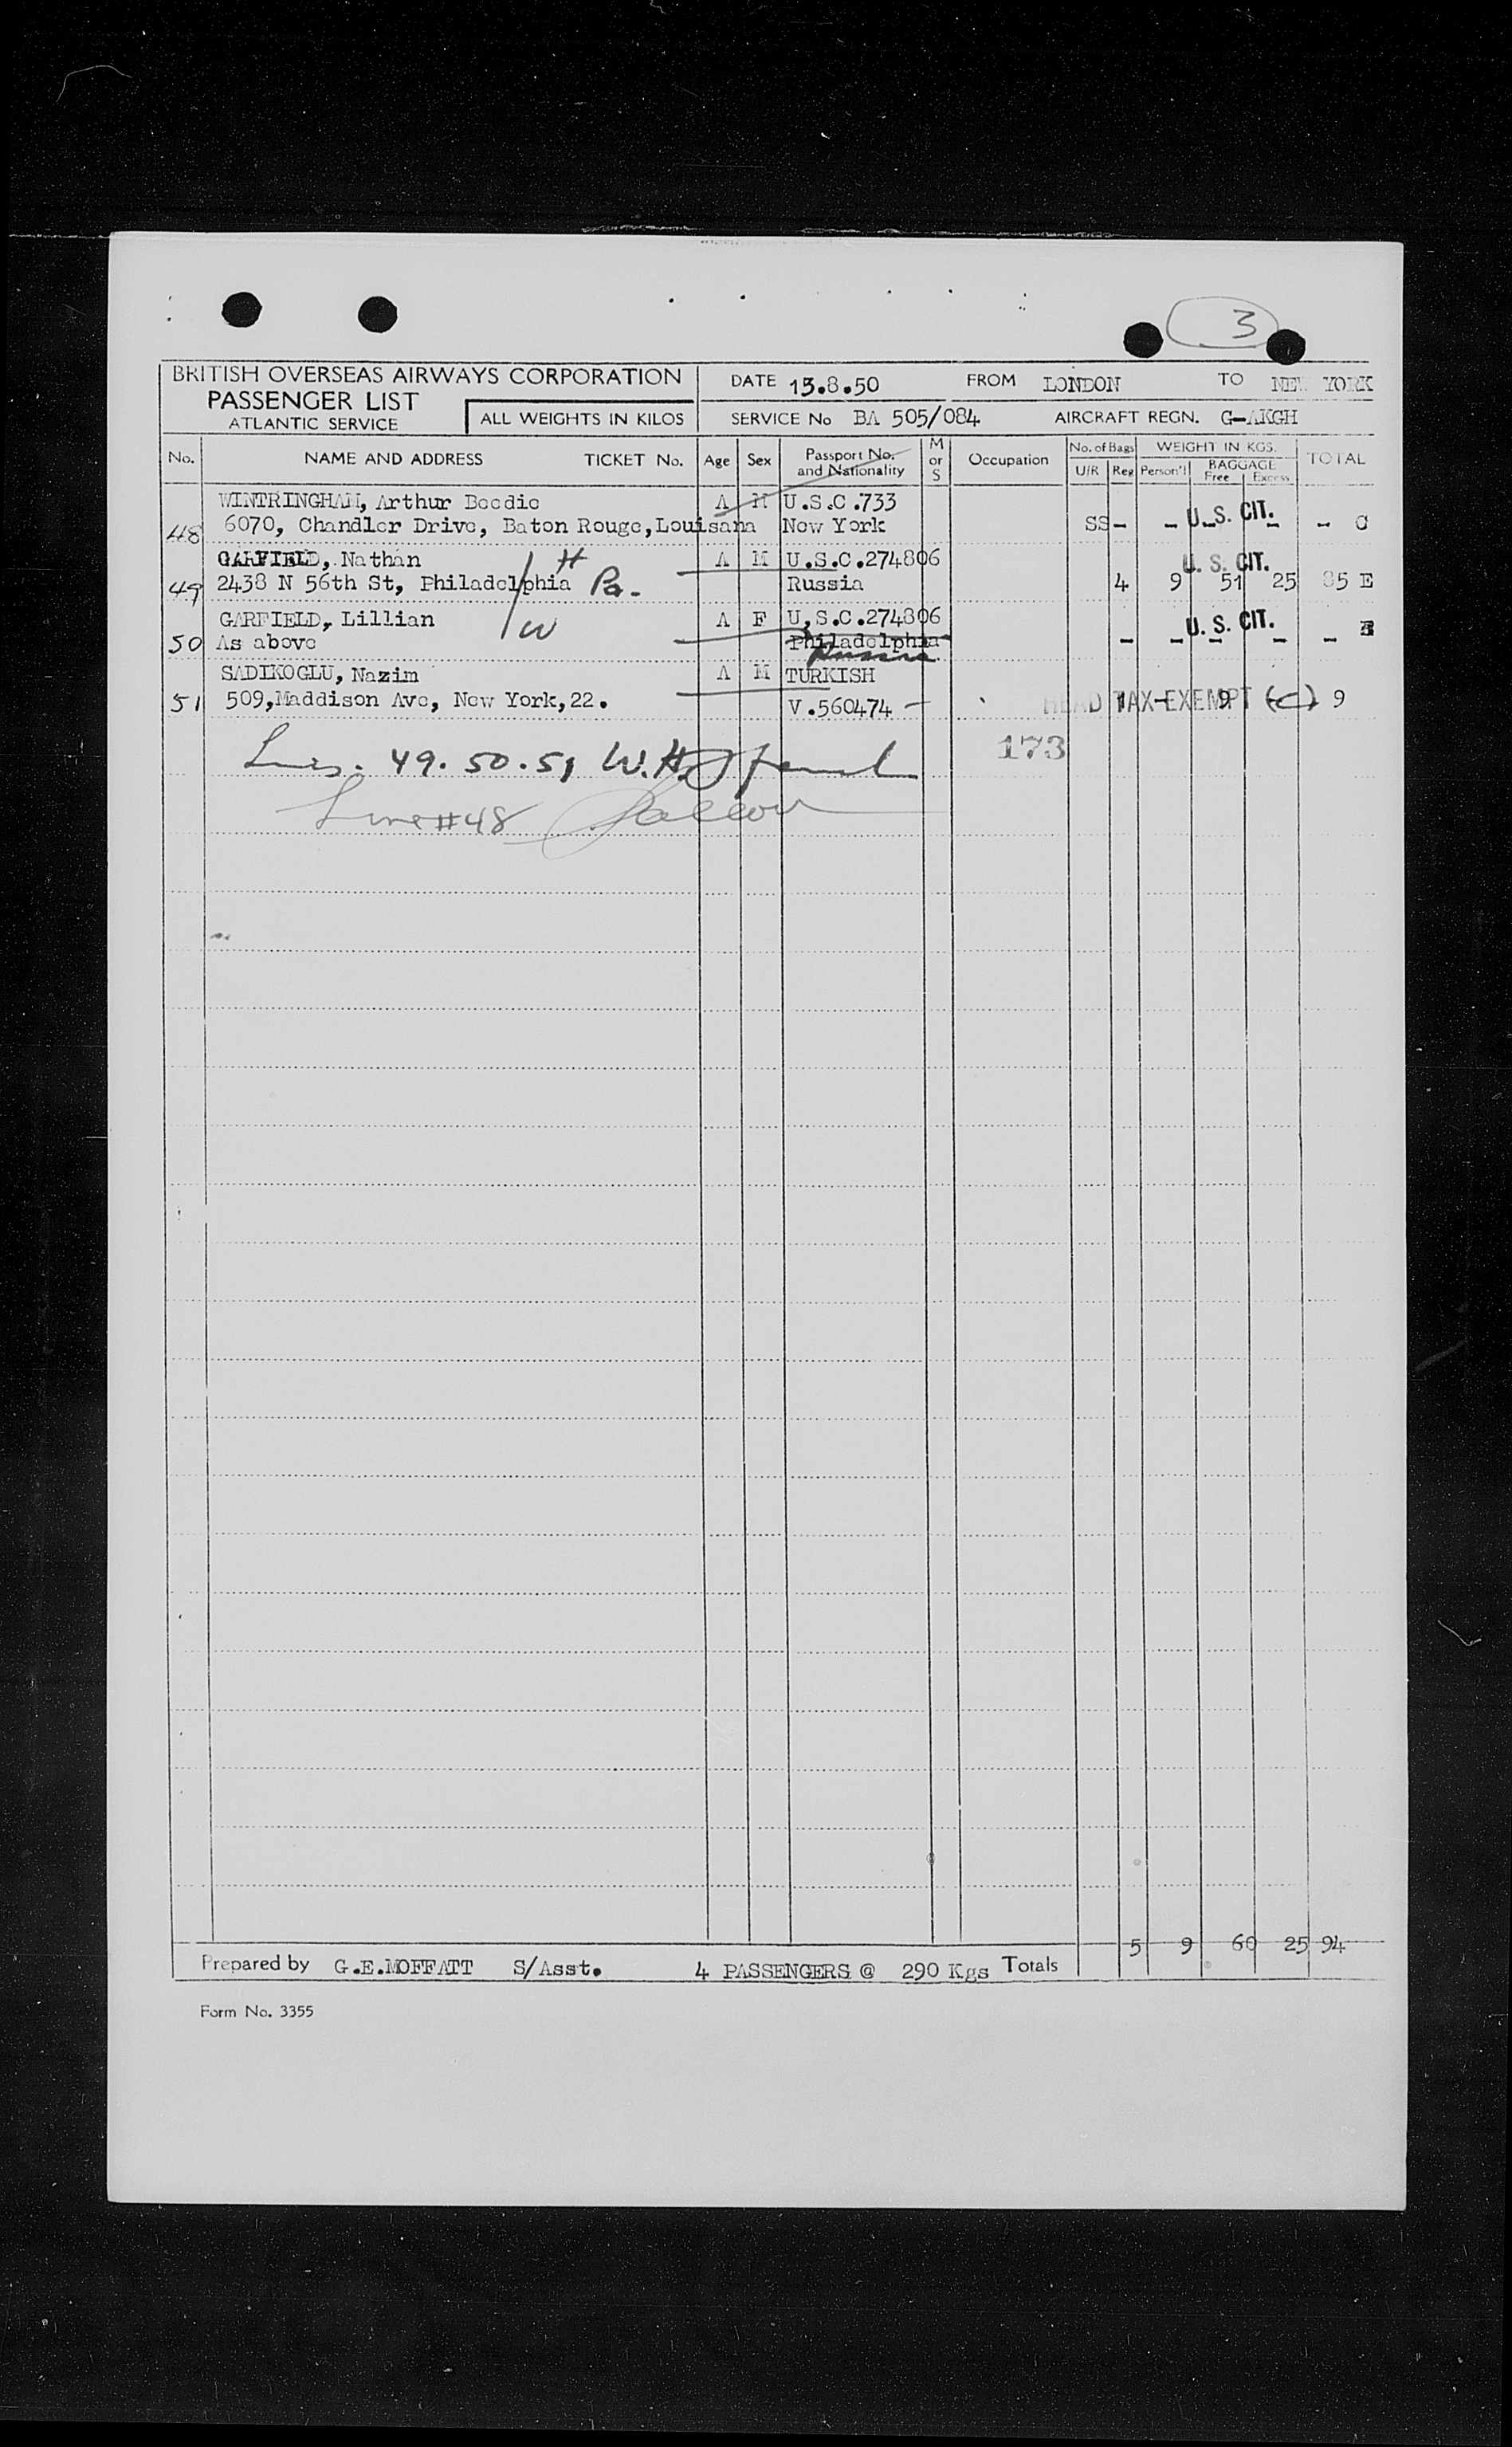 3
BRITISH OVERSEAS AIRWAYS CORPORATION
PASSENGER LIST
ATLANTIC SERVICE
ALL WEIGHTS IN KILOS
DATE 13.8.50 FROM LONDON TO NEW YORK
SERVICE No BA 505/084 AIRCRAFT REGN. G-AKGH
No. NAME AND ADDRESS TICKET No. Age Sex Passport No. and Nationality M or S Occupation No. of Bags U/R Reg WEIGHT IN KGS. Person'l BAGGAGE Free Excess TOTAL
WINTRINGHAM, Arthur Beedie A M U.S.C.733
48 6070, Chandler Drive, Baton Rouge, Louisana New York SS - - U.S. CIT. - - C
GARFIELD, Nathan H A M U.S.C.274806 U. S. CIT.
49 2438 N 56th St, Philadelphia Pa. Russia 4 9 51 25 85 E
GARFIELD, Lillian W A F U,S.C.274806 U. S. CIT.
50 As above Philadelphia - - - - -
Russia
SADIKOGLU, Nazim A M TURKISH
51 509,Maddison Ave, New York,22. V.560474 - HEAD TAX-EXEMPT (C) 1 - 9 9
173
Lines. 49. 50. 51 W.H.
Line #48
5 9 60 25 94
Prepared by G.E.MOFFATT S/Asst. 4 PASSENGERS @ 290 Kgs Totals
Form No. 3355